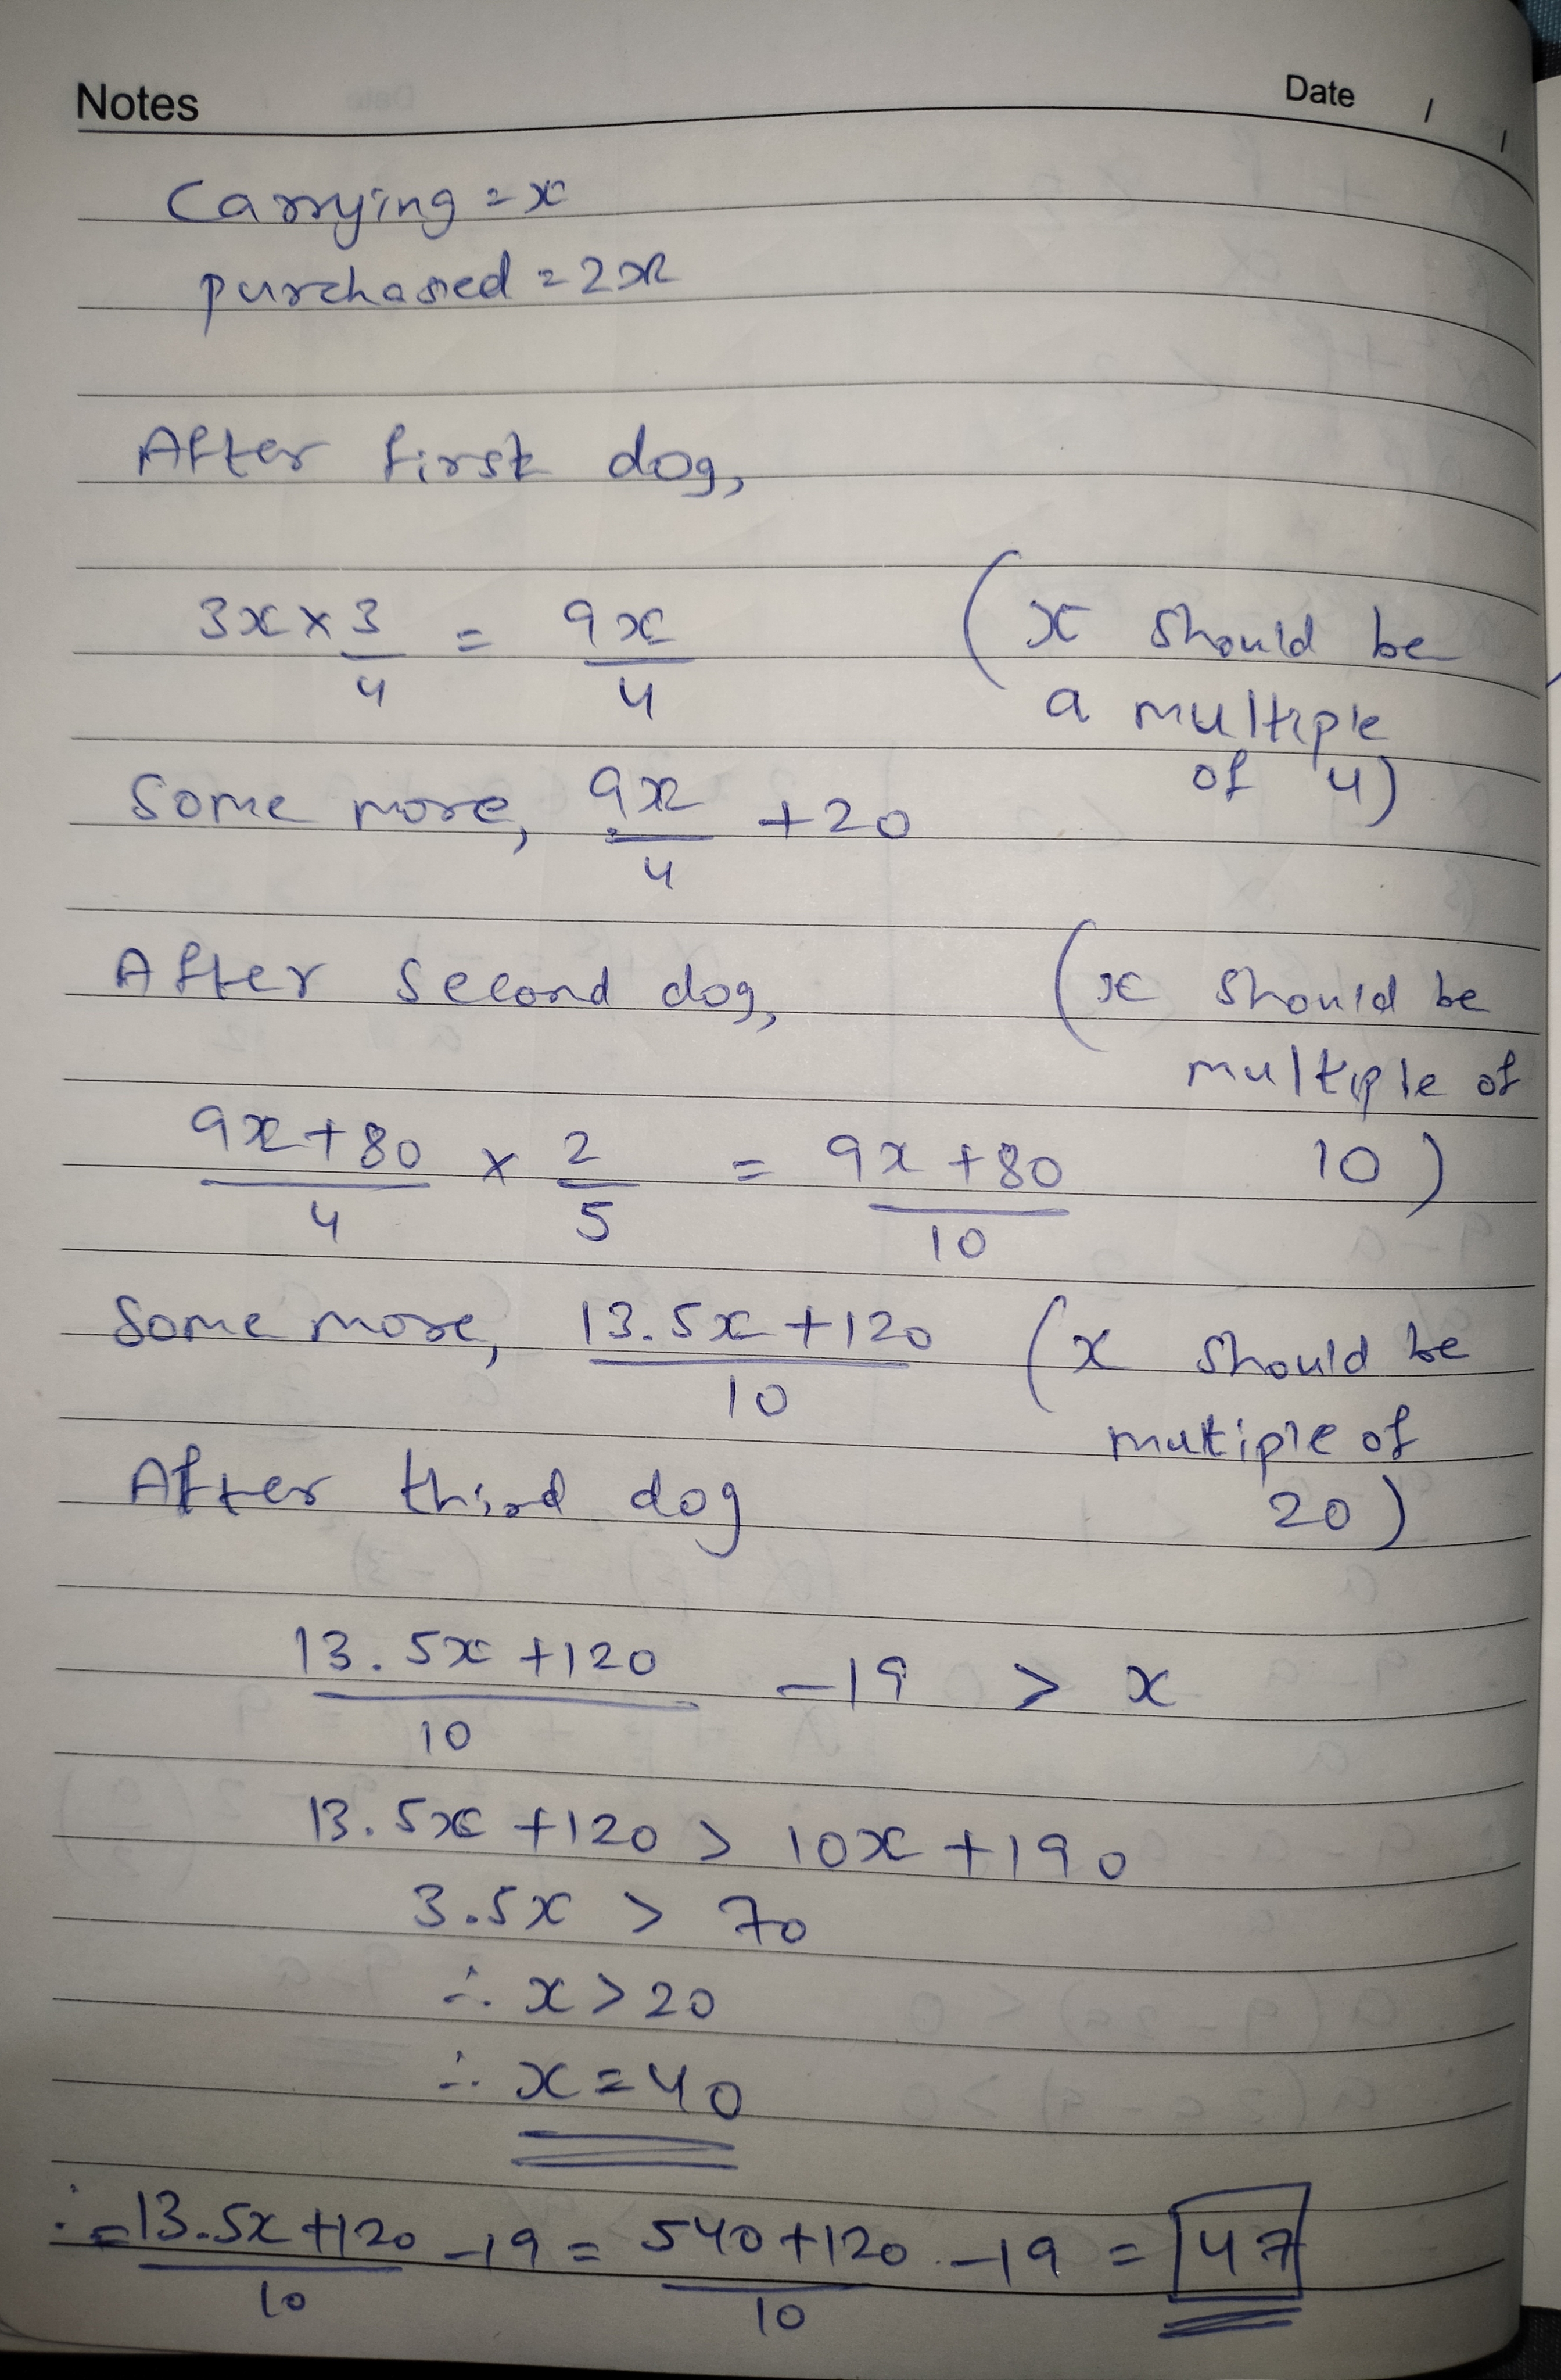 Notes Date / /
Carrying = x
purchased = 2x
After first dog,
3x × 3/4 = 9x/4 (x should be
a multiple
of 4)
Some more, 9x/4 + 20
After second dog, (x should be
multiple of
10)
9x+80/4 × 2/5 = 9x+80/10
Some more, 13.5x+120/10 (x should be
mutiple of
20)
After third dog
13.5x+120/10 - 19 > x
13.5x +120 > 10x +190
3.5x > 70
∴ x > 20
∴ x = 40
∴ = 13.5x+120/10 - 19 = 540+120/10 - 19 = 47